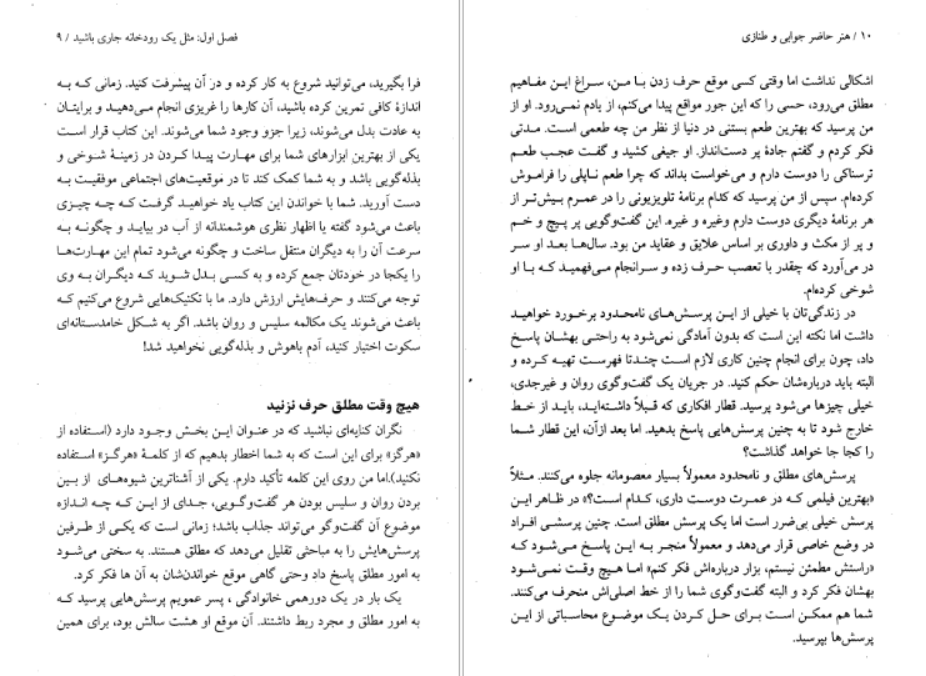 فصل اول: مثل یک رودخانه جاری باشید / ۹
فرا بگیرید، می‌توانید شروع به کار کرده و در آن پیشرفت کنید. زمانی که به
اندازهٔ کافی تمرین کرده باشید، آن کارها را غریزی انجام می‌دهید و برایتان
به عادت بدل می‌شوند، زیرا جزو وجود شما می‌شوند. این کتاب قرار است
یکی از بهترین ابزارهای شما برای مهارت پیدا کردن در زمینهٔ شوخی و
بذله‌گویی باشد و به شما کمک کند تا در موقعیت‌های اجتماعی موفقیت به
دست آورید. شما با خواندن این کتاب یاد خواهید گرفت که چه چیزی
باعث می‌شود گفته یا اظهار نظری هوشمندانه از آب در بیاید و چگونه به
سرعت آن را به دیگران منتقل ساخت و چگونه می‌شود تمام این مهارت‌ها
را یکجا در خودتان جمع کرده و به کسی بدل شوید که دیگران به وی
توجه می‌کنند و حرف‌هایش ارزش دارد. ما با تکنیک‌هایی شروع می‌کنیم که
باعث می‌شوند یک مکالمه سلیس و روان باشد. اگر به شکل خامدستانه‌ای
سکوت اختیار کنید، آدم باهوش و بذله‌گویی نخواهید شد!
هیچ وقت مطلق حرف نزنید
نگران کنایه‌ای نباشید که در عنوان این بخش وجود دارد (استفاده از
«هرگز» برای این است که به شما اخطار بدهیم که از کلمهٔ «هرگز» استفاده
نکنید).اما من روی این کلمه تأکید دارم. یکی از آشناترین شیوه‌های از بین
بردن روان و سلیس بودن هر گفت‌وگویی، جدای از این که چه اندازه
موضوع آن گفت‌وگو می‌تواند جذاب باشد؛ زمانی است که یکی از طرفین
پرسش‌هایش را به مباحثی تقلیل می‌دهد که مطلق هستند. به سختی می‌شود
به امور مطلق پاسخ داد وحتی گاهی موقع خواندن‌شان به آن ها فکر کرد.
یک بار در یک دورهمی خانوادگی ، پسر عمویم پرسش‌هایی پرسید که
به امور مطلق و مجرد ربط داشتند. آن موقع او هشت سالش بود، برای همین
۱۰ / هنر حاضر جوابی و طنازی
اشکالی نداشت اما وقتی کسی موقع حرف زدن با من، سراغ این مفاهیم
مطلق می‌رود، حسی را که این جور مواقع پیدا می‌کنم، از یادم نمی‌رود. او از
من پرسید که بهترین طعم بستنی در دنیا از نظر من چه طعمی است. مدتی
فکر کردم و گفتم جادهٔ پر دست‌انداز. او جیغی کشید و گفت عجب طعم
ترسناکی را دوست دارم و می‌خواست بداند که چرا طعم ناپلی را فراموش
کرده‌ام. سپس از من پرسید که کدام برنامهٔ تلویزیونی را در عمرم بیش‌تر از
هر برنامهٔ دیگری دوست دارم وغیره و غیره. این گفت‌وگویی پر پیچ و خم
و پر از مکث و داوری بر اساس علایق و عقاید من بود. سال‌ها بعد او سر
در می‌آورد که چقدر با تعصب حرف زده و سرانجام می‌فهمید که با او
شوخی کرده‌ام.
در زندگی‌تان با خیلی از این پرسش‌های نامحدود برخورد خواهید
داشت اما نکته این است که بدون آمادگی نمی‌شود به راحتی بهشان پاسخ
داد، چون برای انجام چنین کاری لازم است چندتا فهرست تهیه کرده و
البته باید درباره‌شان حکم کنید. در جریان یک گفت‌وگوی روان و غیرجدی،
خیلی چیزها می‌شود پرسید. قطار افکاری که قبلاً داشته‌اید، باید از خط
خارج شود تا به چنین پرسش‌هایی پاسخ بدهید. اما بعد ازآن، این قطار شما
را کجا جا خواهد گذاشت؟
پرسش‌های مطلق و نامحدود معمولاً بسیار معصومانه جلوه می‌کنند. مثلاً
«بهترین فیلمی که در عمرت دوست داری، کدام است؟» در ظاهر این
پرسش خیلی بی‌ضرر است اما یک پرسش مطلق است. چنین پرسشی افراد
در وضع خاصی قرار می‌دهد و معمولاً منجر به این پاسخ می‌شود که
«راستش مطمئن نیستم، بزار درباره‌اش فکر کنم» اما هیچ وقت نمی‌شود
بهشان فکر کرد و البته گفت‌وگوی شما را از خط اصلی‌اش منحرف می‌کنند.
شما هم ممکن است برای حل کردن یک موضوع محاسباتی از این
پرسش‌ها بپرسید.